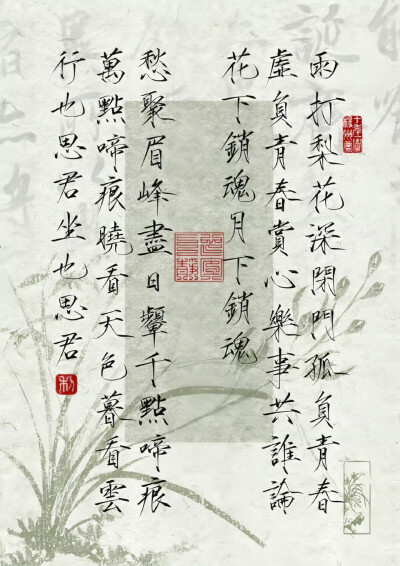 雨打梨花深閉門孤負青春
虛負青春賞心樂事共誰論
花下銷魂月下銷魂
愁聚眉峰盡日顰千點啼痕
萬點啼痕曉看天色暮看雲
行也思君坐也思君